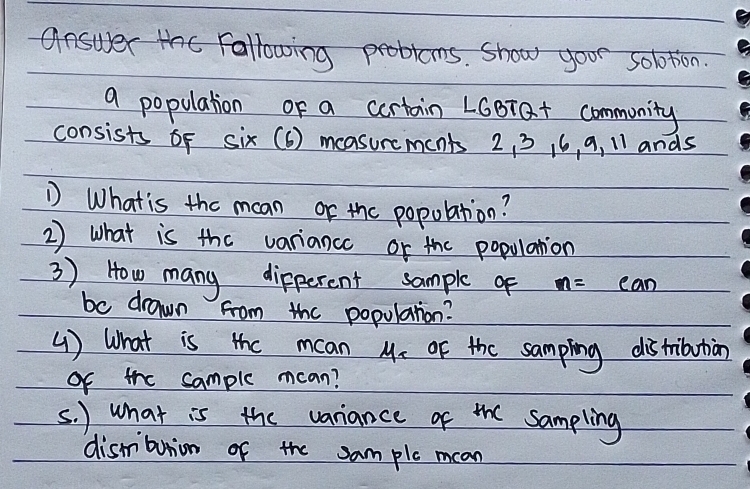 Answer the Following problems. Show your solution.
a population of a certain LGBTQ+ community
consists of six (6) measurements 2, 3, 6, 9, 11 and s
1) What is the mean of the population?
2) What is the variance of the population
3) How many different sample of n= can
be drawn From the population?
4) What is the mean of the sampling distribution
of the sample mean?
5.) What is the variance of the sampling
distribution of the sample mean